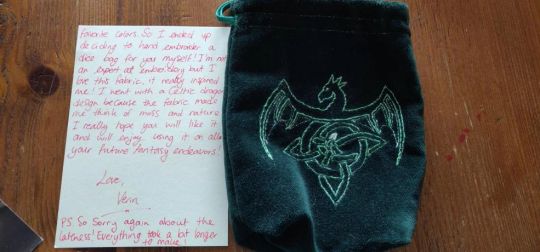 favorite colors. So I ended up
deciding to hand embroider a
dice bag for you myself! I'm not
an expert at embroidery but I
love this fabric, it really inspired
me! I went with a Celtic dragon
design because the fabric made
me think of moss and nature
I really hope you will like it
and will enjoy using it on all
your future fantasy endeavors!
Love,
PS. So Sorry again about the
lateness! Everything took a bit longer
to make!